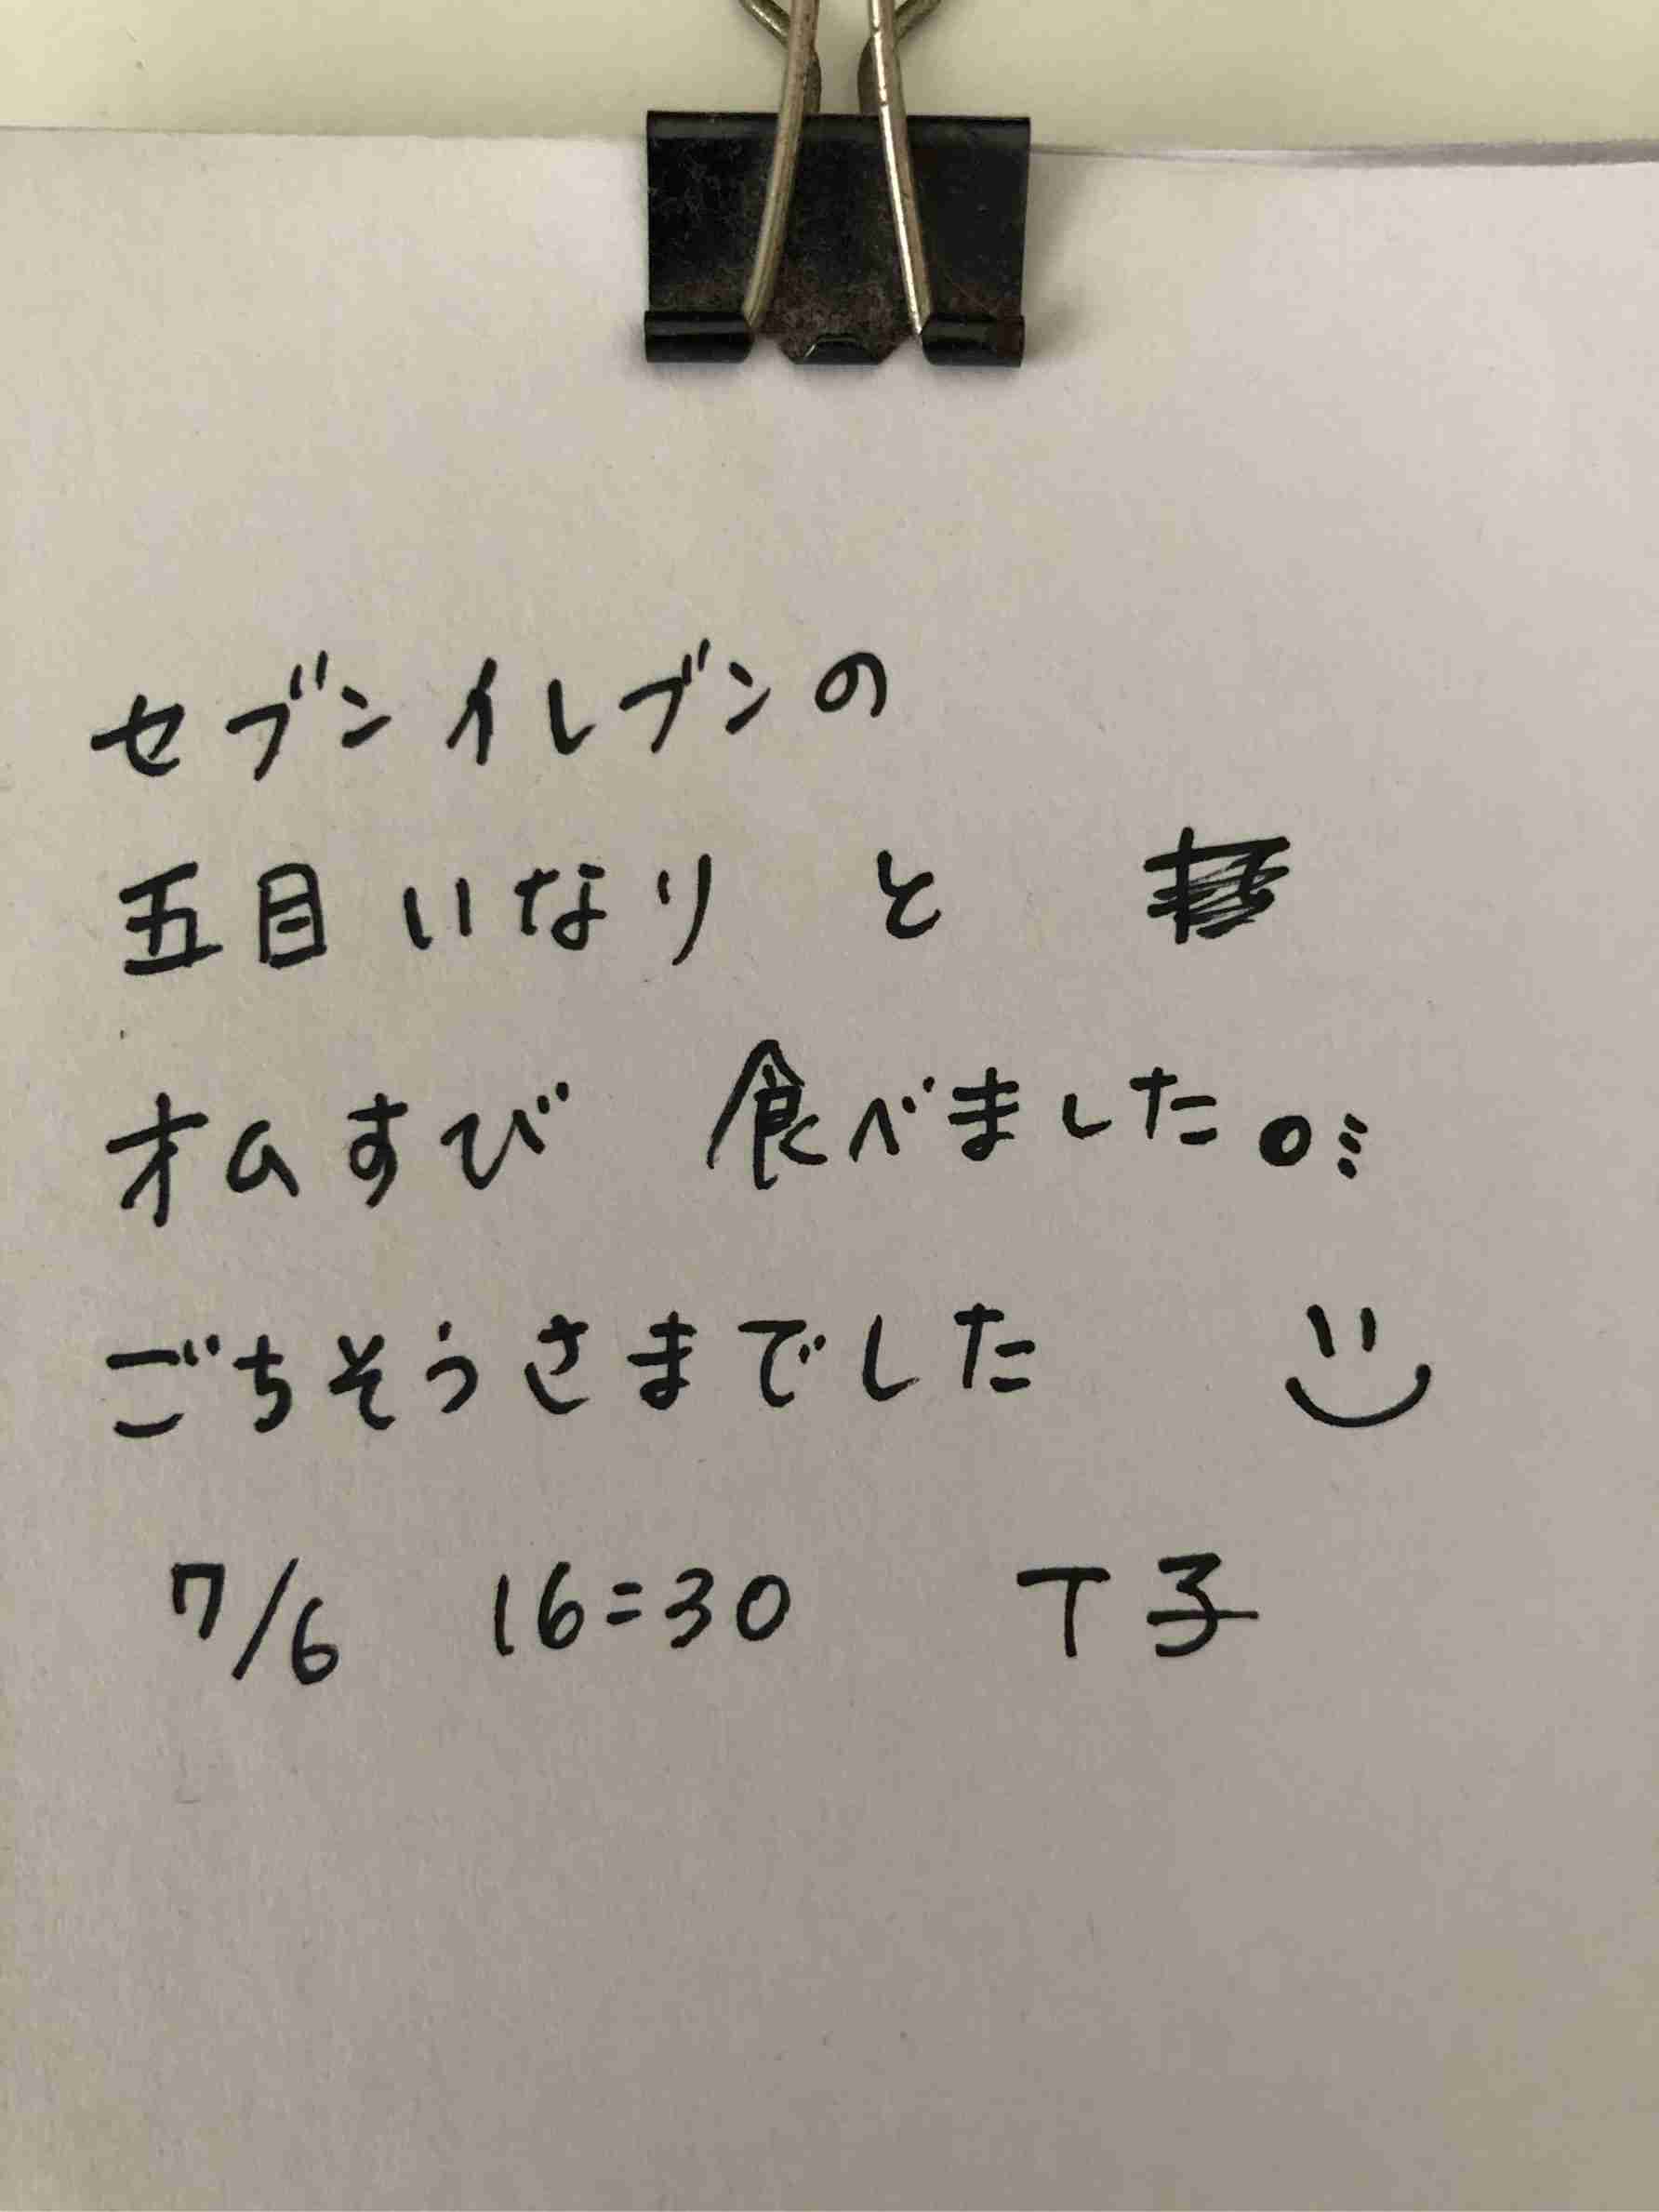 セブンイレブンの
五目いなり と
オムすび 食べました。
ごちそうさまでした
7/6 16:30 T子